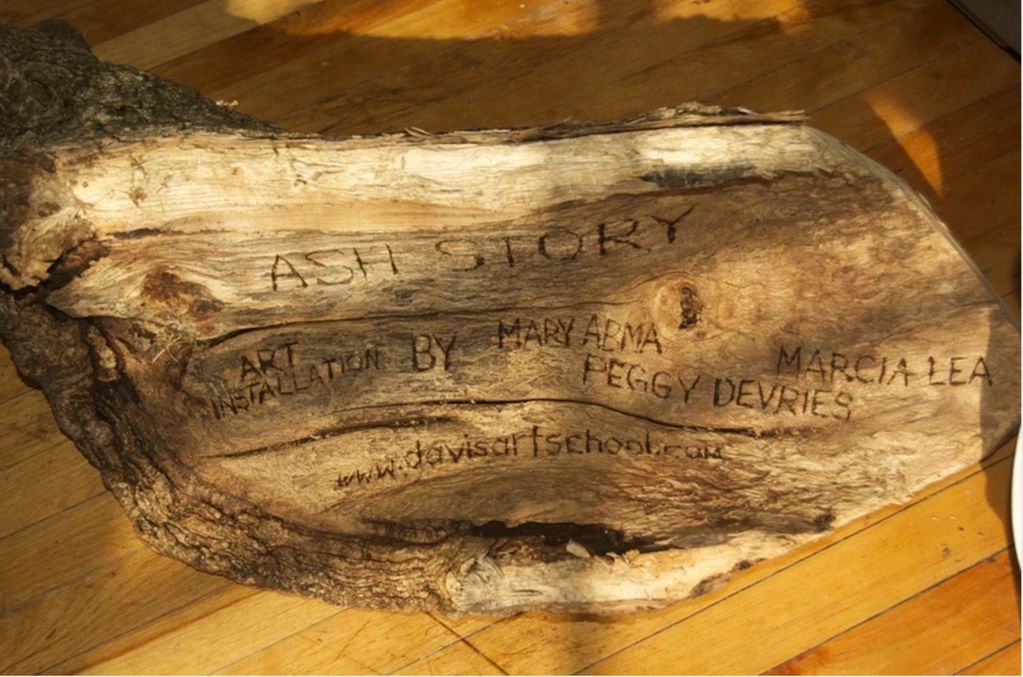 ASH STORY
ART INSTALLATION BY MARY ABMA
PEGGY DEVRIES
MARCIA LEA
www.davisartschool.com